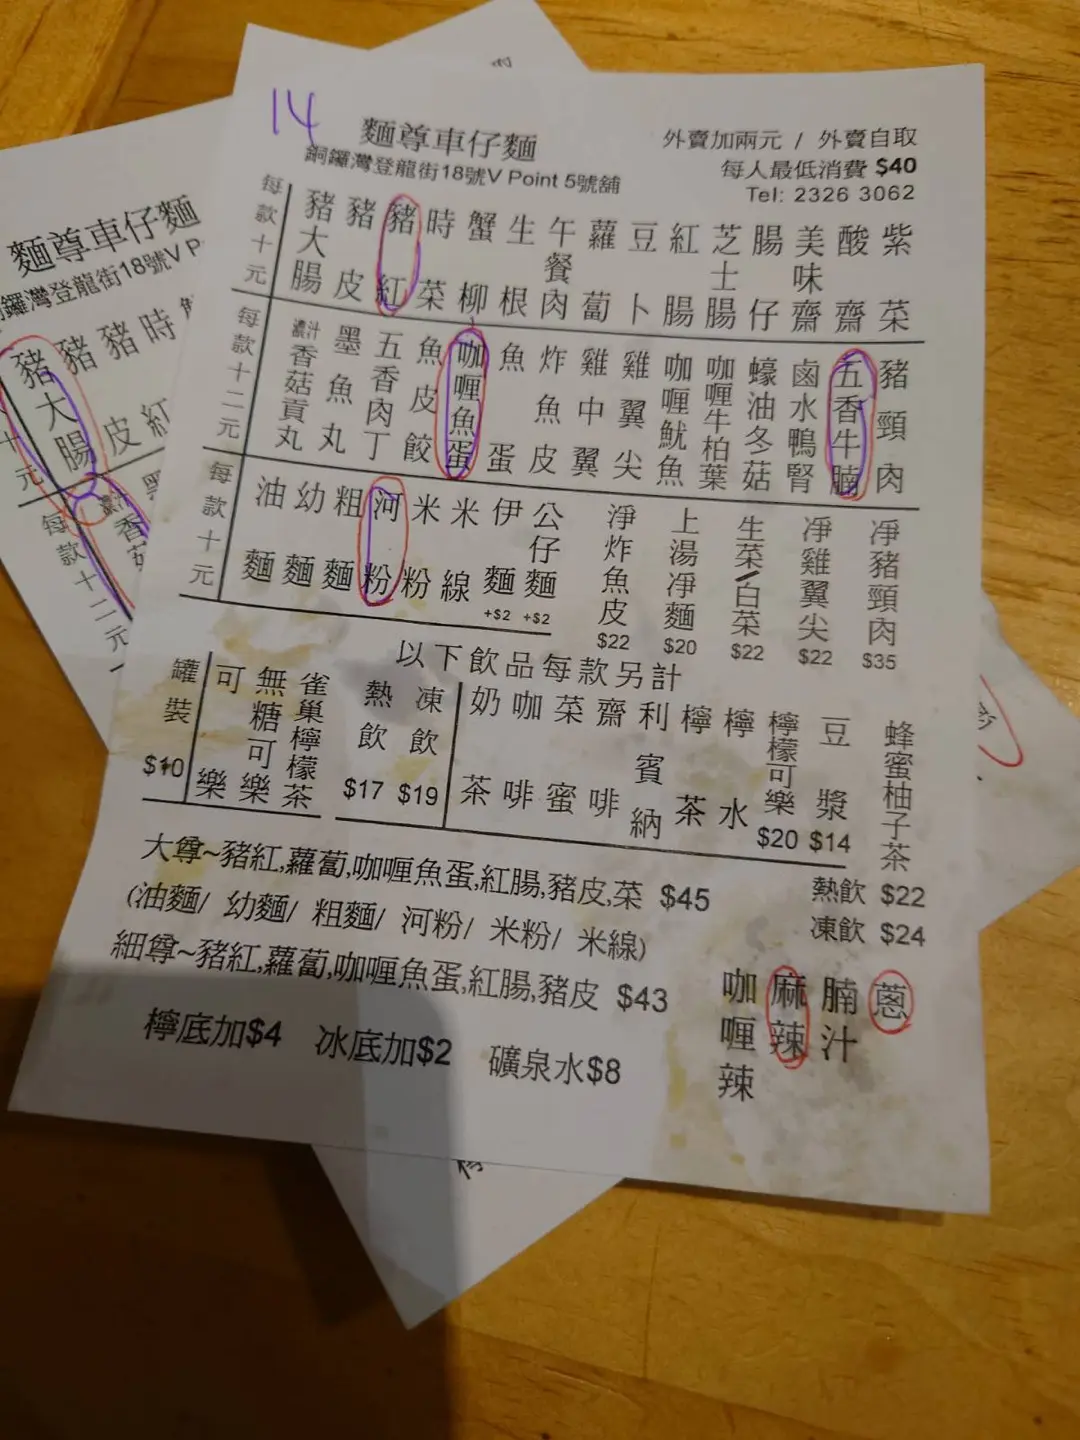 14
麵尊車仔麵
銅鑼灣登龍街18號V Point 5號舖
外賣加兩元 / 外賣自取
每人最低消費 $40
Tel: 2326 3062
每款十元
豬大腸 豬皮 豬紅 時菜 蟹柳 生根 午餐肉 蘿蔔 豆卜 紅腸 芝士腸 腸仔 美味齋 酸齋 紫菜
每款十二元
濃汁香菇貢丸 墨魚丸 五香肉丁 魚皮餃 咖喱魚蛋 魚蛋 炸魚皮 雞中翼 雞翼尖 咖喱魷魚 咖喱牛柏葉 蠔油冬菇 鹵水鴨腎 五香牛腩 豬頸肉
每款十元
油麵 幼麵 粗麵 河粉 米粉 米線 伊麵 +$2 公仔麵 +$2
淨炸魚皮 $22 上湯淨麵 $20 生菜/白菜 $22 淨雞翼尖 $22 淨豬頸肉 $35
以下飲品每款另計
罐裝 $10
可樂 無糖可樂 雀巢檸檬茶
熱飲 $17 凍飲 $19
奶茶 咖啡 菜蜜 齋啡 利賓納 檸茶 檸水 檸檬可樂 $20 豆漿 $14 蜂蜜柚子茶
熱飲 $22
凍飲 $24
大尊~豬紅,蘿蔔,咖喱魚蛋,紅腸,豬皮,菜 $45
(油麵/ 幼麵/ 粗麵/ 河粉/ 米粉/ 米線)
細尊~豬紅,蘿蔔,咖喱魚蛋,紅腸,豬皮 $43
檸底加$4 冰底加$2 礦泉水$8
咖喱辣 麻辣 腩汁 蔥
麵尊車仔麵
鑼灣登龍街18號V P
豬大腸 豬皮 豬紅 時
十元
每款十二元
濃汁香菇